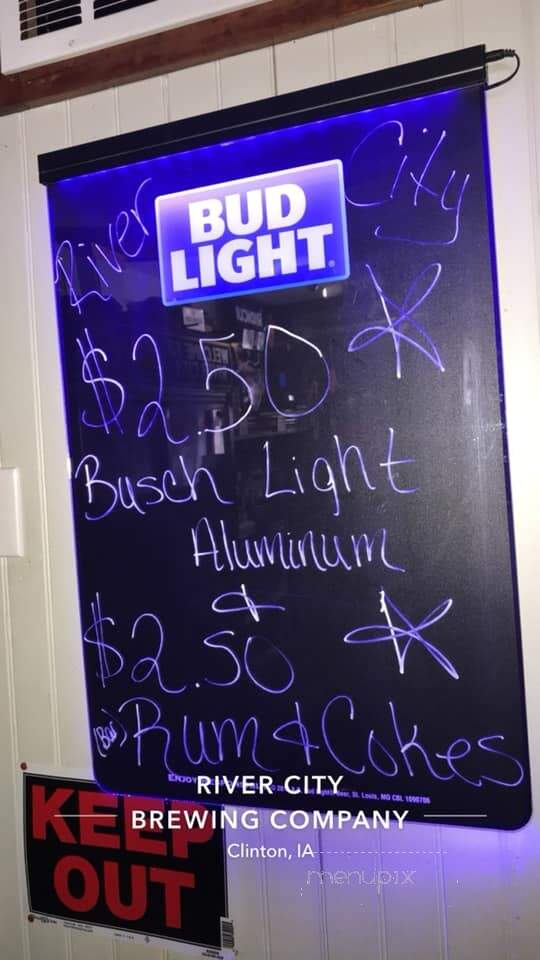 River City
BUD
LIGHT
$2.50
Busch Light
Aluminum
&
$2.50
(Bar) Rum & Cokes
ENJOY
Beer, St. Louis, MO
RIVER CITY
BREWING COMPANY
Clinton, IA
KEEP
OUT
menupix